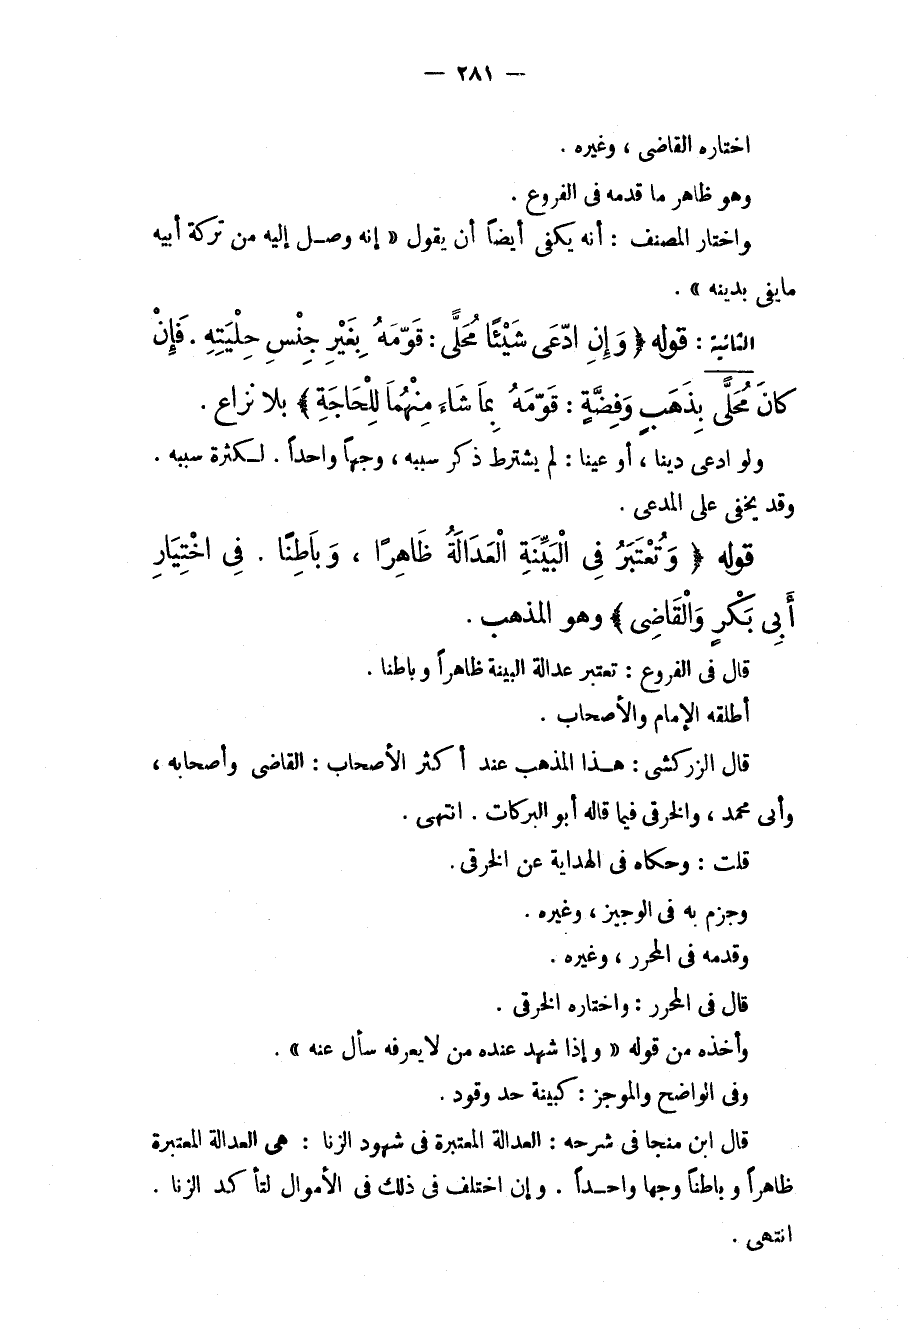 — ٢٨١ —
اختاره القاضى ، وغيره .
وهو ظاهر ما قدمه فى الفروع .
واختار المصنف : أنه يكفى أيضاً أن يقول « إنه وصـل إليه من تركة أبيه
مايفى بدينه » .
الثانية : قوله ﴿ وَإِنِ ادّعَى شَيْئًا مُحَلًّى : قَوّمَهُ بِغَيْرِ جِنْسِ حِلْيَتِهِ . فَإِنْ
كانَ مُحَلًّى بِذَهَبٍ وَفِضَّةٍ : قَوّمَهُ بِمَا شَاءَ مِنْهُمَا لِلْحَاجَةِ ﴾ بلا نزاع .
ولو ادعى دينا ، أو عينا : لم يشترط ذكر سببه ، وجهاً واحداً . لـكثرة سببه .
وقد يخفى على المدعى .
قوله ﴿ وَتُعْتَبَرُ فِى الْبَيِّنَةِ الْعَدَالَةُ ظَاهِرًا ، وَبَاطِنًا . فِى اخْتِيَارِ
أَبِى بَكْرٍ وَالْقَاضِى ﴾ وهو المذهب .
قال فى الفروع : تعتبر عدالة البينة ظاهراً وباطنا .
أطلقه الإمام والأصحاب .
قال الزركشى : هـذا المذهب عند أكثر الأصحاب : القاضى وأصحابه ،
وأبى محمد ، والخرقى فيما قاله أبو البركات . انتهى .
قلت : وحكاه فى الهداية عن الخرقى .
وجزم به فى الوجيز ، وغيره .
وقدمه فى المحرر ، وغيره .
قال فى المحرر : واختاره الخرقى .
وأخذه من قوله « وإذا شهد عنده من لايعرفه سأل عنه » .
وفى الواضح والموجز : كبينة حد وقود .
قال ابن منجا فى شرحه : العدالة المعتبرة فى شهود الزنا : هى العدالة المعتبرة
ظاهراً وباطناً وجها واحـداً . وإن اختلف فى ذلك فى الأموال لتأكد الزنا .
انتهى .